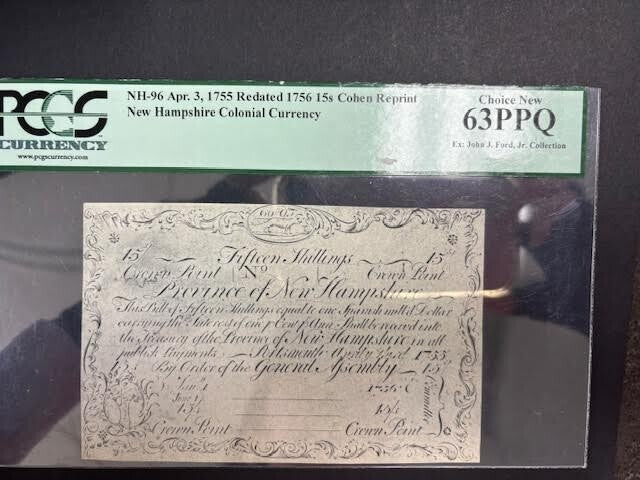 PCGS
CURRENCY
www.pcgscurrency.com
NH-96 Apr. 3, 1755 Redated 1756 15s Cohen Reprint
New Hampshire Colonial Currency
Choice New
63PPQ
Ex: John J. Ford, Jr. Collection
15 Fifteen Shillings 15
Crown Point No Crown Point
Province of New Hampshire
This Bill of Fifteen Shillings equal to one Spanish mill'd Dollar
carrying the Interest of one p Cent p Ann. Shall be received into
the Treasury of the Province of New Hampshire in all
publick Payments. Portsmouth 1755
By Order of the General Assembly 15
Jan 1 1756
June 1
Crown Point Crown Point